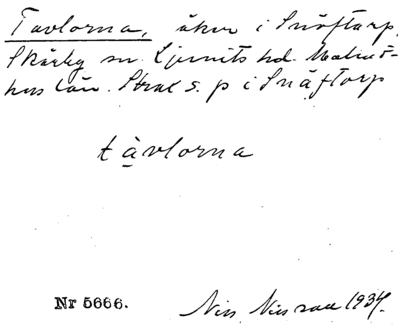 Tavlorna, åker i Snäftarp,
Skårby sn. Ljunits hd. Malmö-
hus län. Strax s. p i Snäftorp
tàvlorna
Nr 5666.
Nils Nilsson 1934.